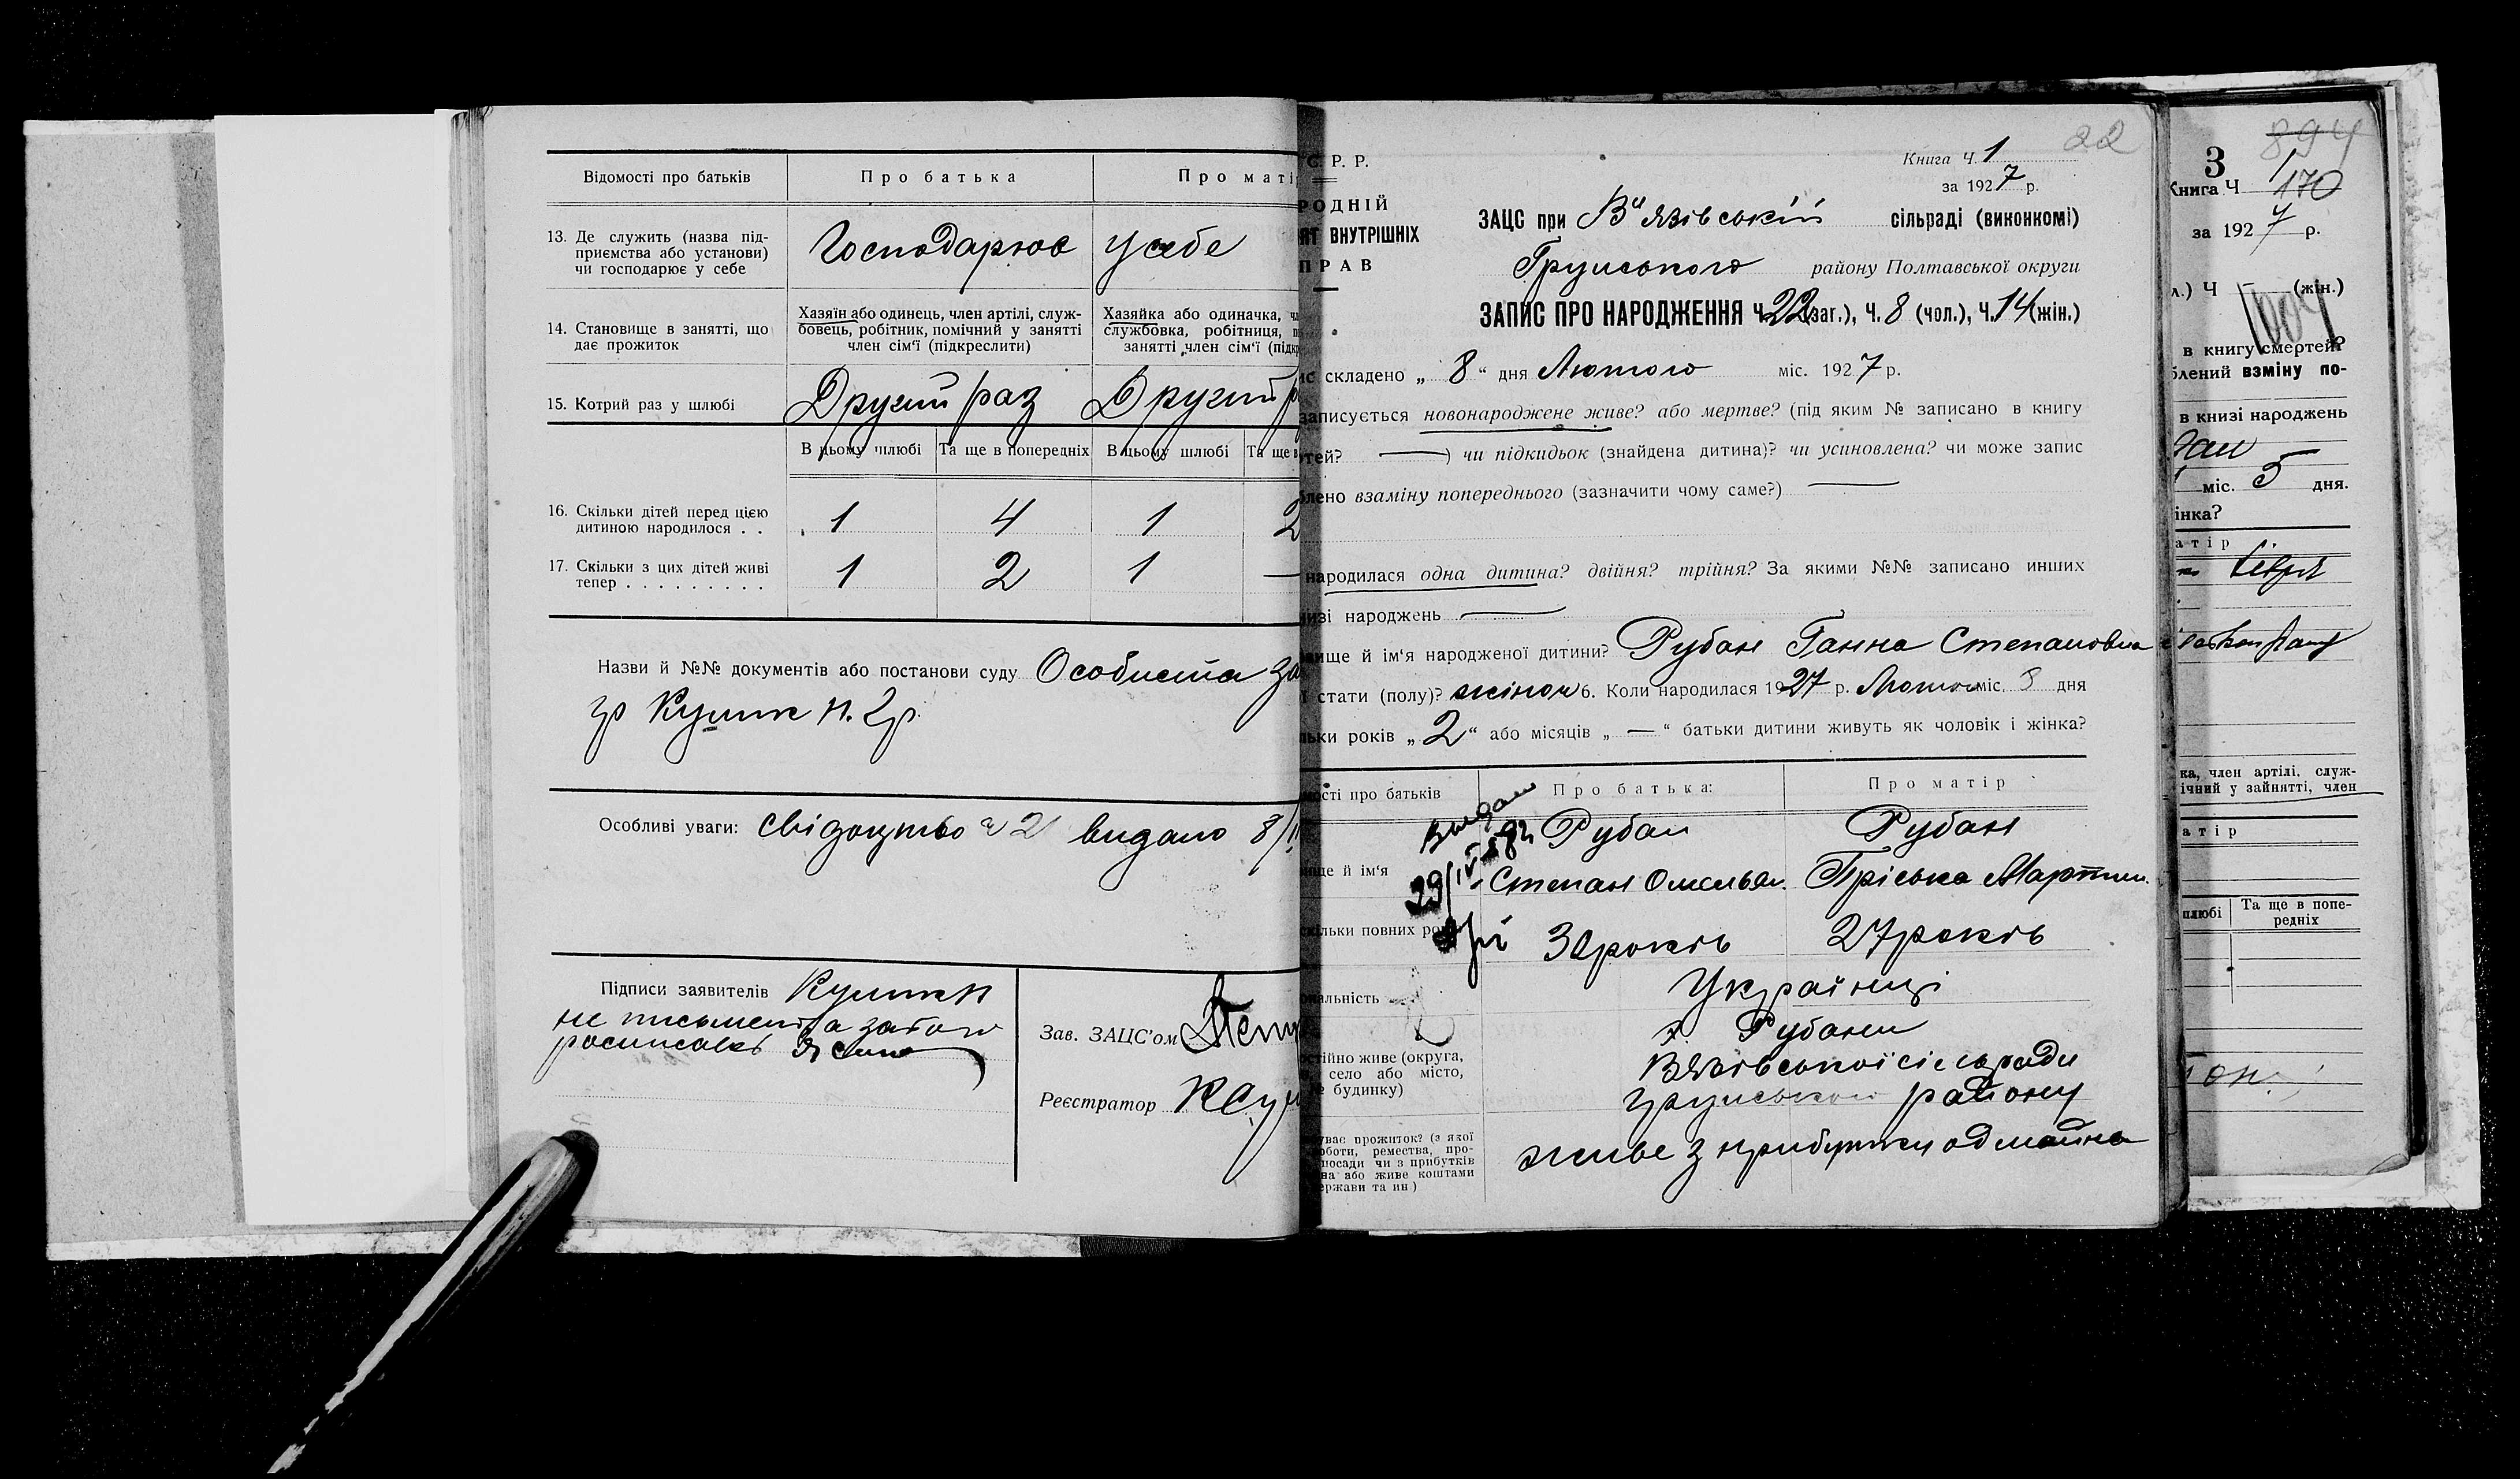 Відомості про батьків
Про батька
Про матір
13. Де служить (назва під-
приємства або установи)
чи господарює у себе
Господарює у себе
14. Становище в занятті, що
дає прожиток
Хазяїн або одинець, член артілі, служ-
бовець, робітник, помічний у занятті
член сім'ї (підкреслити)
Хазяйка або одиначка,
службовка, робітниця,
занятті член сім'ї
15. Котрий раз у шлюбі
Другий раз
Другий
В цьому шлюбі
Та ще в попередніх
В цьому шлюбі
Та ще в
16. Скільки дітей перед цією
дитиною народилося . .
1 4 1 2
17. Скільки з цих дітей живі
тепер . . . . . . . . .
1 2 1 —
Назви й №№ документів або постанови суду Особиста за
гр
Особливі уваги: свідоцтво ч 21 видано 8/II
Підписи заявителів
не письменна за
Зав. ЗАЦС'ом
Реєстратор
С. Р. Р.
РОДНІЙ
ЯТ ВНУТРІШНІХ
ПРАВ
22
Книга Ч. 1
за 1927 р.
ЗАЦС при В"язівській сільраді (виконкомі)
Грунського району Полтавської округи
ЗАПИС ПРО НАРОДЖЕННЯ Ч. 22 (заг.), Ч. 8 (чол.), Ч. 14 (жін.)
складено „ 8 “ дня Лютого міс. 1927 р.
записується новонароджене живе? або мертве? (під яким № записано в книгу
тей? —) чи підкидьок (знайдена дитина)? чи усиновлена? чи може запис
блено взаміну попереднього (зазначити чому саме?) —
народилася одна дитина? двійня? трійня? За якими №№ записано инших
низі народжень —
вище й ім'я народженої дитини? Рубан Ганна Степановна
ї стати (полу)? жіноч 6. Коли народилася 1927 р. Лютого міс. 8 дня
льки років „ 2 “ або місяців „ — “ батьки дитини живуть як чоловік і жінка?
мості про батьків
Про батька:
Про матір
вище й ім'я
Рубан
Степан Омельян.
Рубан
Пріська Мартин.
29/IV
скільки повних ро
30 років
27 років
нальність
Українці
стійно живе (округа,
село або місто,
№ будинку)
х. Рубани
Вязівської сільради
Грунського району
уває прожиток? (з якої
роботи, ремества, про-
посади чи з прибутків
на або живе коштами
ержави та ин)
живе з прибутку од майна
894
3
Книга Ч 1
170
за 1927 р.
л.) Ч — (жін.)
1004
в книгу смертей?
блений взміну по-
в книзі народжень
міс. 5 дня.
інка?
атір
ка, член артілі, служ-
ічний у зайнятті, член
атір
шлюбі
Та ще в попе-
редніх